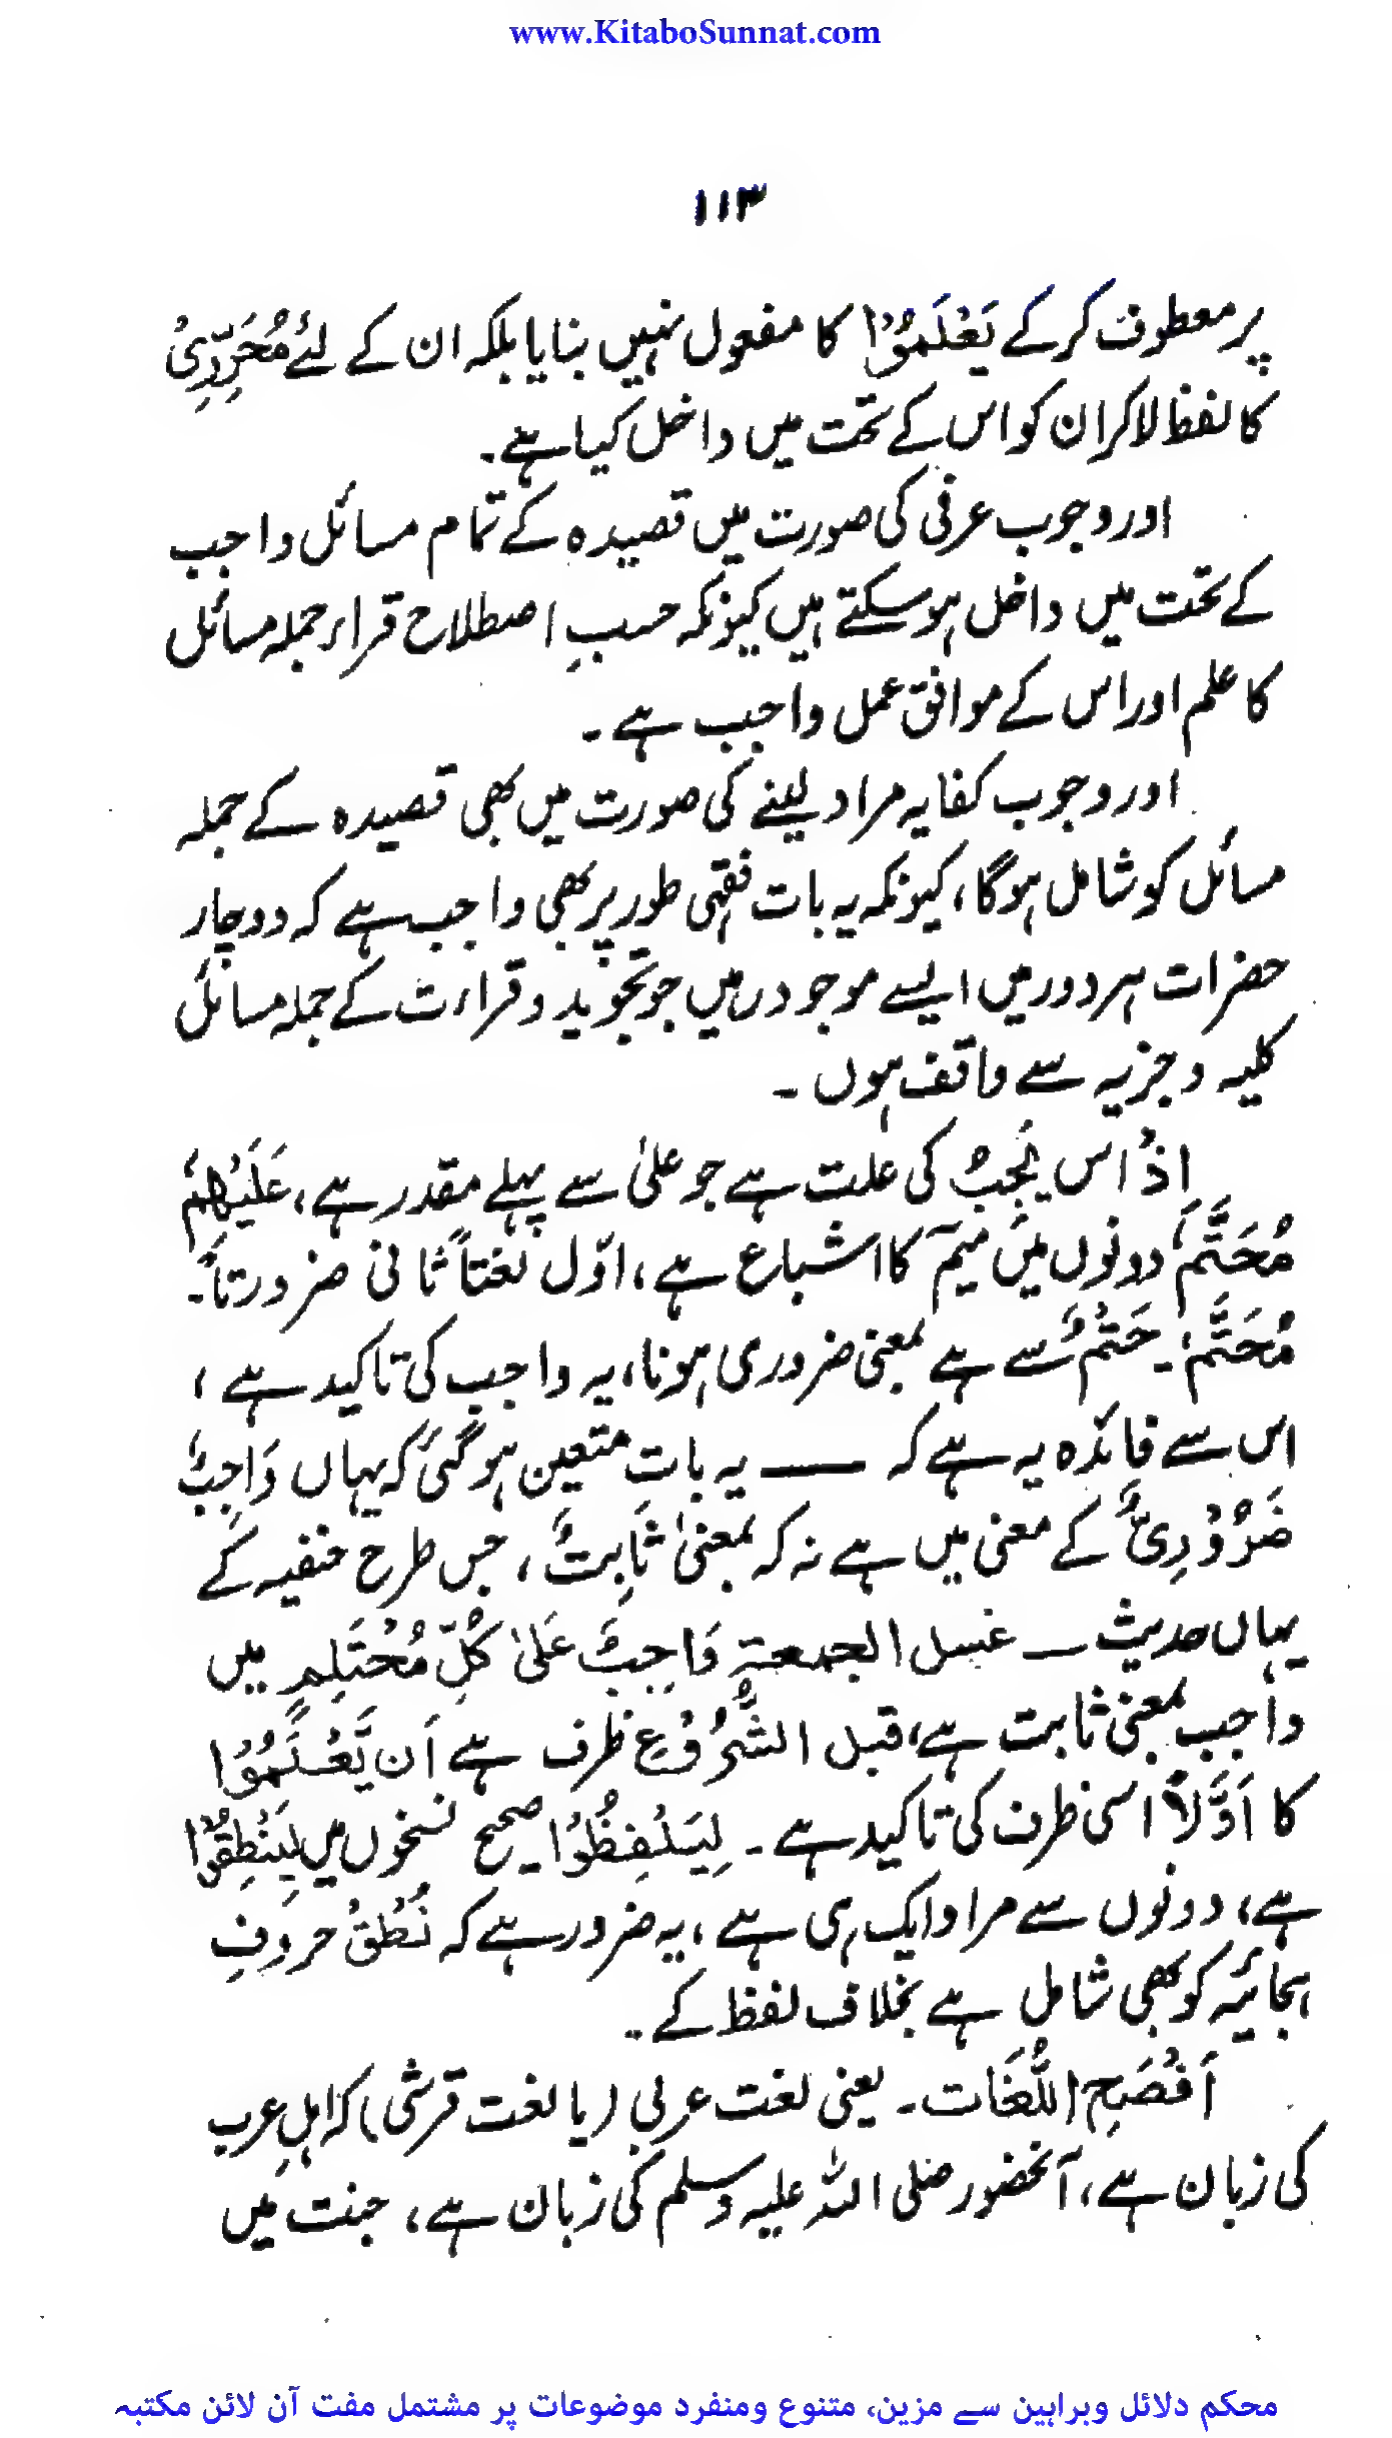 www.KitaboSunnat.com
۱۱۳
پر معطوف کرکے یَعْلَمُوْا کا مفعول نہیں بنایا بلکہ ان کے لئے مُحَرِّرِیْ
کا لفظ لاکر ان کو اس کے تحت میں داخل کیا ہے۔
اور وجوب عرفی کی صورت میں قصیدہ کے تمام مسائل واجب
کے تحت میں داخل ہو سکتے ہیں کیونکہ حسبِ اصطلاح قراء جملہ مسائل
کا علم اور اس کے موافق عمل واجب ہے۔
اور وجوب کفایہ مراد لینے کی صورت میں بھی قصیدہ کے جملہ
مسائل کو شامل ہوگا، کیونکہ یہ بات فقہی طور پر بھی واجب ہے کہ دو چار
حضرات ہر دور میں ایسے موجود رہیں جو تجوید و قراءت کے جملہ مسائل
کلیہ و جزیہ سے واقف ہوں۔
اِذْ اس یَجِبُ کی علت ہے جو علیٰ سے پہلے مقدر ہے، عَلَیْھِمْ
مُحَتَّمٌ دونوں میں میم کا اشباع ہے، اوّل لغتاً ثانی ضرورتاً۔
مُحَتَّمٌ۔ حَتْمٌ سے ہے بمعنی ضروری ہونا، یہ واجب کی تاکید ہے،
اس سے فائدہ یہ ہے کہ ـــــ یہ بات متعین ہوگئی کہ یہاں وَاجِبٌ
ضَرُوْرِیٌّ کے معنی میں ہے نہ کہ بمعنیٰ ثَابِتٌ، جس طرح حنفیہ کے
یہاں حدیث ـــ غسل الجمعۃ وَاجِبٌ عَلیٰ کُلِّ مُحْتَلِمٍ میں
واجب بمعنی ثابت ہے، قبل الشُّرُوْعِ ظرف ہے اَن یَّعْلَمُوْا
کا اَوَّلاً اسی ظرف کی تاکید ہے۔ لِیَلْفِظُوْا صحیح نسخوں میں لِیَنْطِقُوْا
ہے، دونوں سے مراد ایک ہی ہے، یہ ضرور ہے کہ نُطْقُ حروفِ
ہجائیہ کو بھی شامل ہے بخلاف لفظ کے۔
اَفْصَحِ اللُّغَات۔ یعنی لغت عربی (یا لغت قرشی) کہ اہلِ عرب
کی زبان ہے، آنحضور صلی اللہ علیہ وسلم کی زبان ہے، جنت میں
محکم دلائل وبراہین سے مزین، متنوع ومنفرد موضوعات پر مشتمل مفت آن لائن مکتبہ